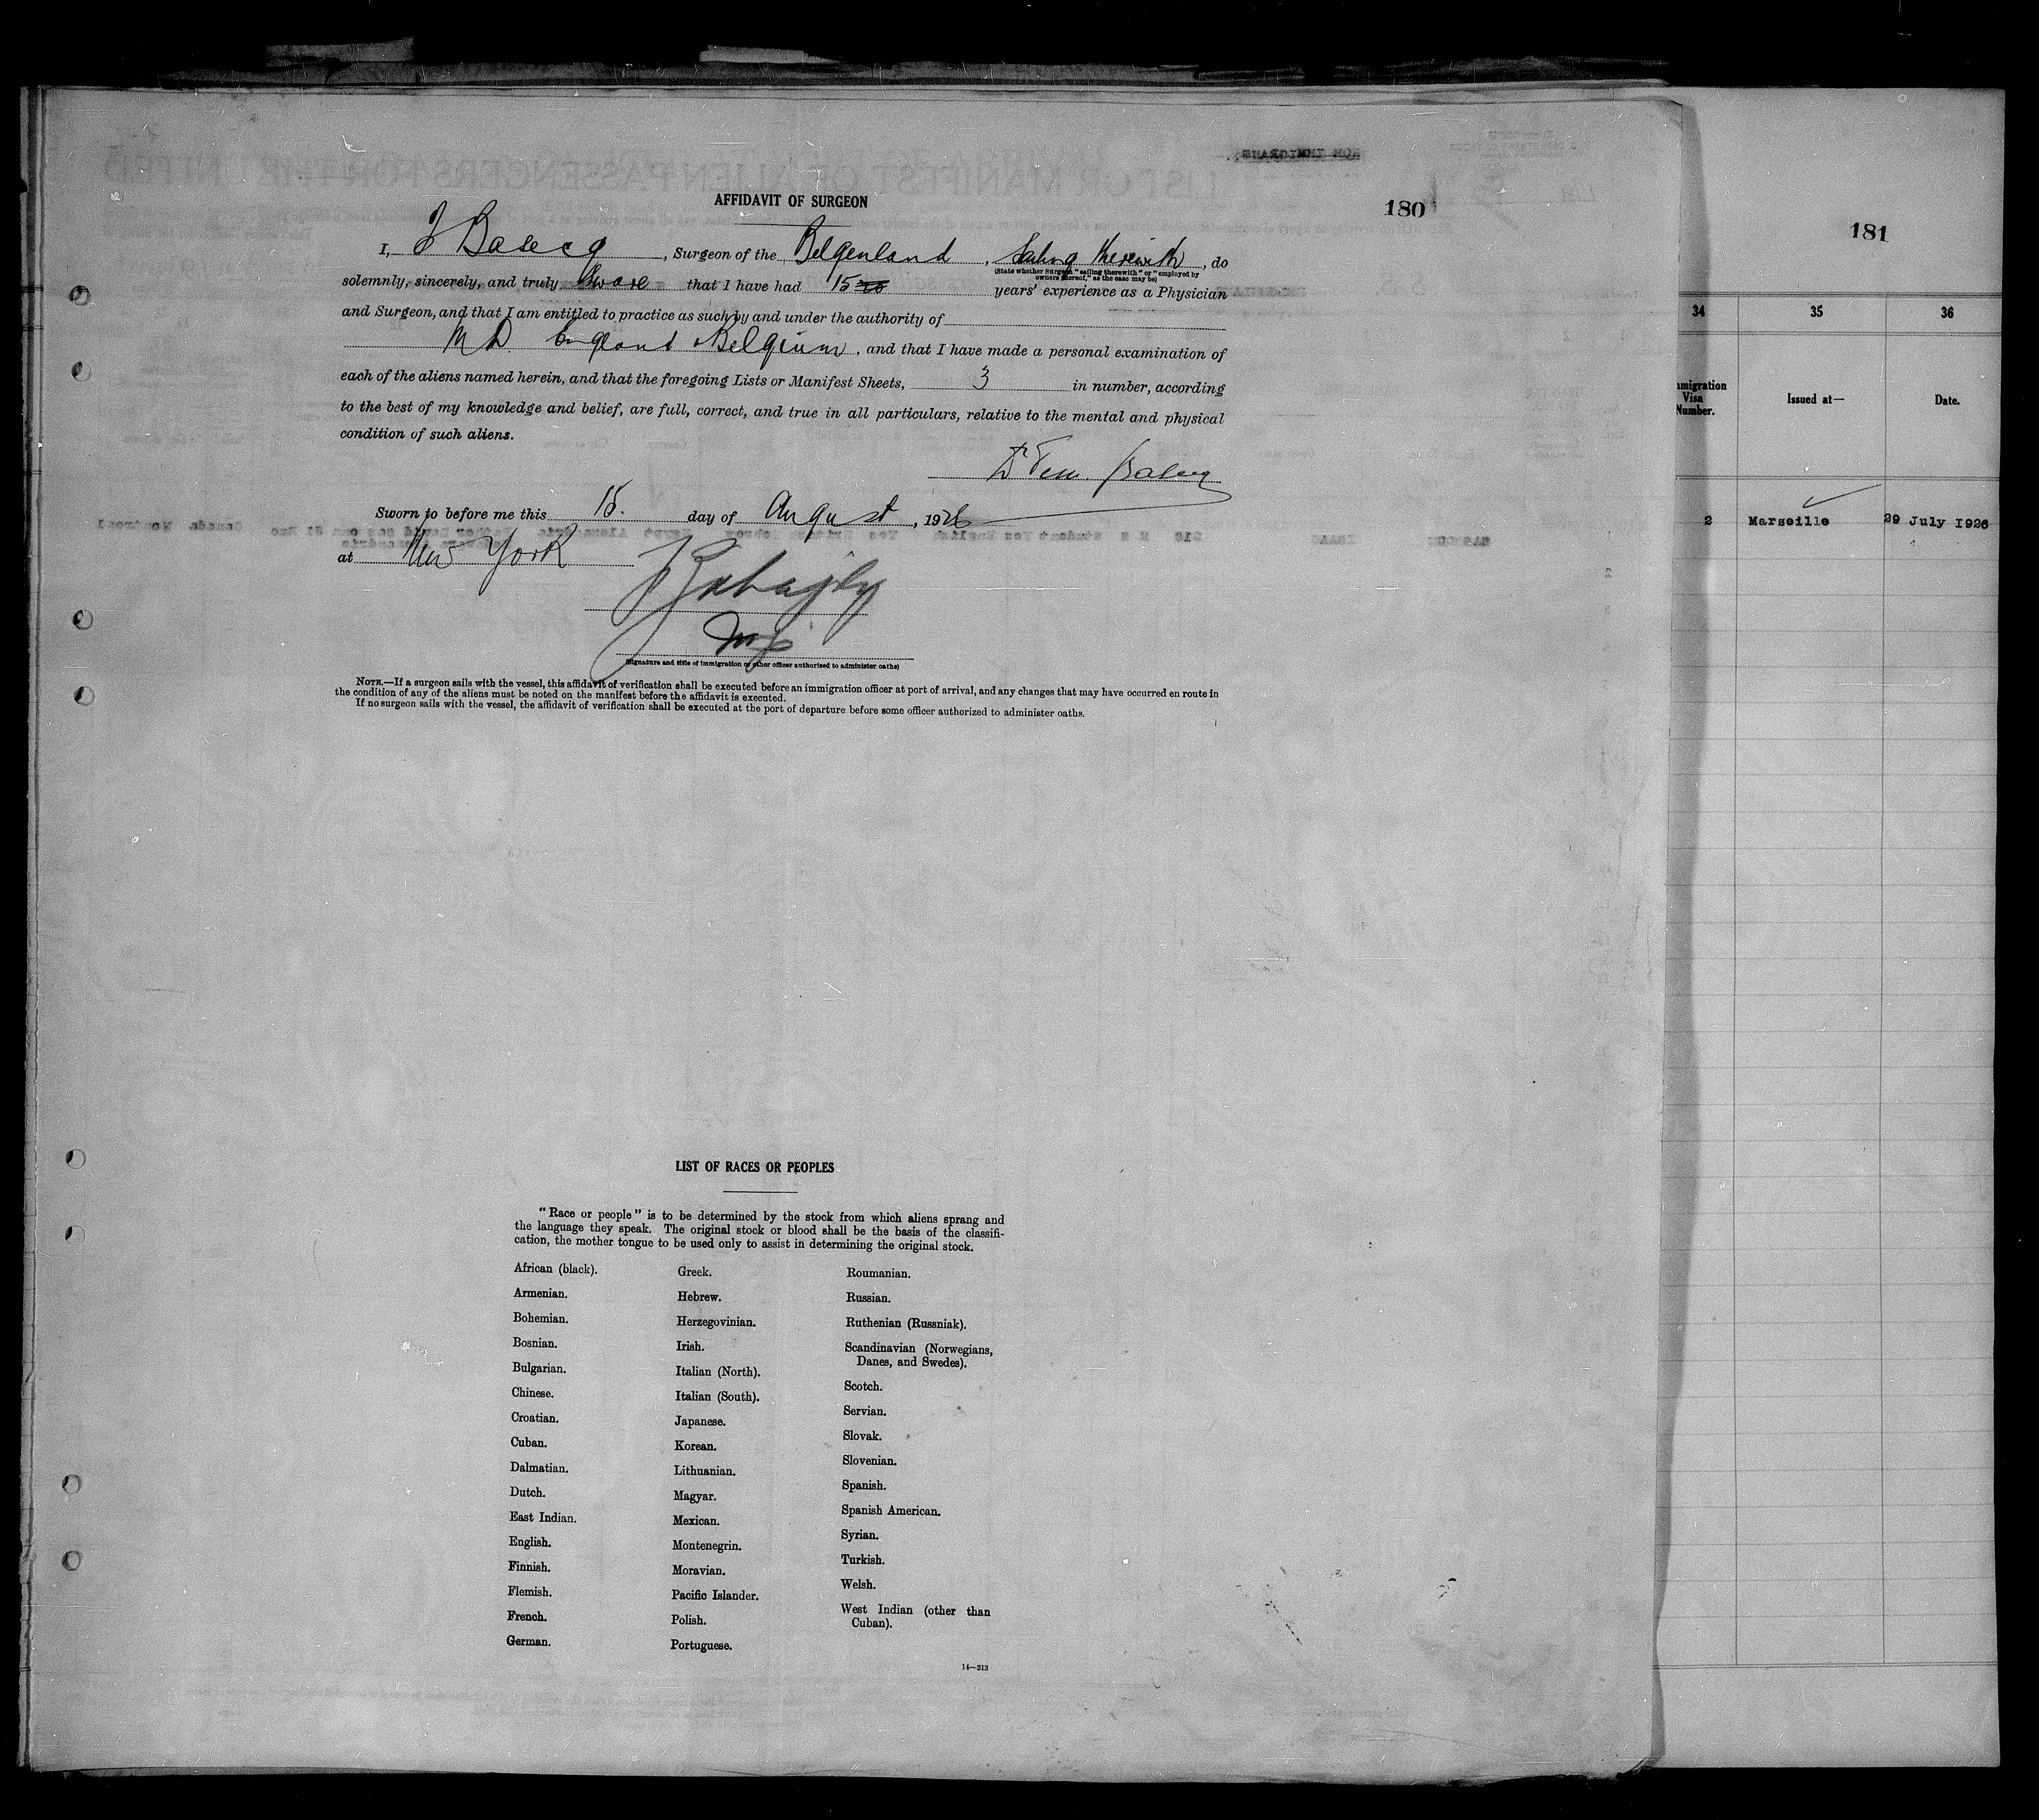 AFFIDAVIT OF SURGEON
180
I, J Basecq, Surgeon of the Belgenland, Sailing therewith, do
(State whether Surgeon "sailing therewith" or "employed by
owners thereof," as the case may be)
solemnly, sincerely, and truly swear that I have had 15 years' experience as a Physician
and Surgeon, and that I am entitled to practice as such by and under the authority of
M D. England Belgium, and that I have made a personal examination of
each of the aliens named herein, and that the foregoing Lists or Manifest Sheets, 3 in number, according
to the best of my knowledge and belief, are full, correct, and true in all particulars, relative to the mental and physical
condition of such aliens.
Sworn to before me this 15. day of August, 1926
at New York
(Signature and title of immigration or other officer authorized to administer oaths)
NOTE.—If a surgeon sails with the vessel, this affidavit of verification shall be executed before an immigration officer at port of arrival, and any changes that may have occurred en route in
the condition of any of the aliens must be noted on the manifest before the affidavit is executed.
If no surgeon sails with the vessel, the affidavit of verification shall be executed at the port of departure before some officer authorized to administer oaths.
LIST OF RACES OR PEOPLES
"Race or people" is to be determined by the stock from which aliens sprang and
the language they speak. The original stock or blood shall be the basis of the classifi-
cation, the mother tongue to be used only to assist in determining the original stock.
African (black).
Armenian.
Bohemian.
Bosnian.
Bulgarian.
Chinese.
Croatian.
Cuban.
Dalmatian.
Dutch.
East Indian.
English.
Finnish.
Flemish.
French.
German.
Greek.
Hebrew.
Herzegovinian.
Irish.
Italian (North).
Italian (South).
Japanese.
Korean.
Lithuanian.
Magyar.
Mexican.
Montenegrin.
Moravian.
Pacific Islander.
Polish.
Portuguese.
Roumanian.
Russian.
Ruthenian (Russniak).
Scandinavian (Norwegians,
Danes, and Swedes).
Scotch.
Servian.
Slovak.
Slovenian.
Spanish.
Spanish American.
Syrian.
Turkish.
Welsh.
West Indian (other than
Cuban).
14—213
181
34 35 36
migration
Visa
Number.
Issued at—
Date.
2 Marseille 29 July 1926